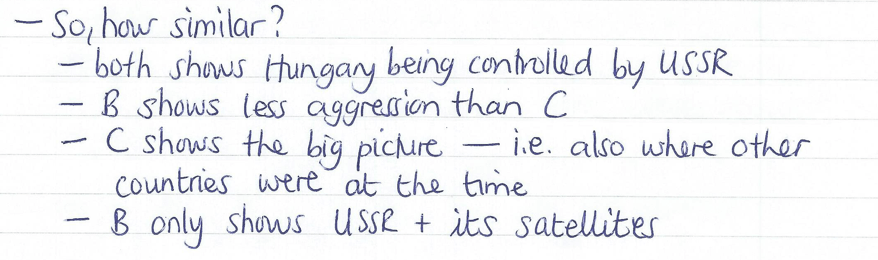 — So, how similar?
— both shows Hungary being controlled by USSR
— B shows less aggression than C
— C shows the big picture — i.e. also where other
countries were at the time
— B only shows USSR + its satellites